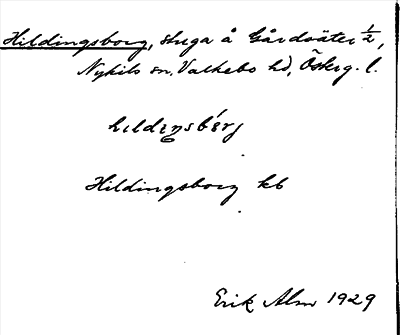 Hildingsborg, stuga å Gårdsäter ½,
Nykils sn, Valkebo hd, Östrg. l.
Hildingsborg kb
Erik Alm 1929